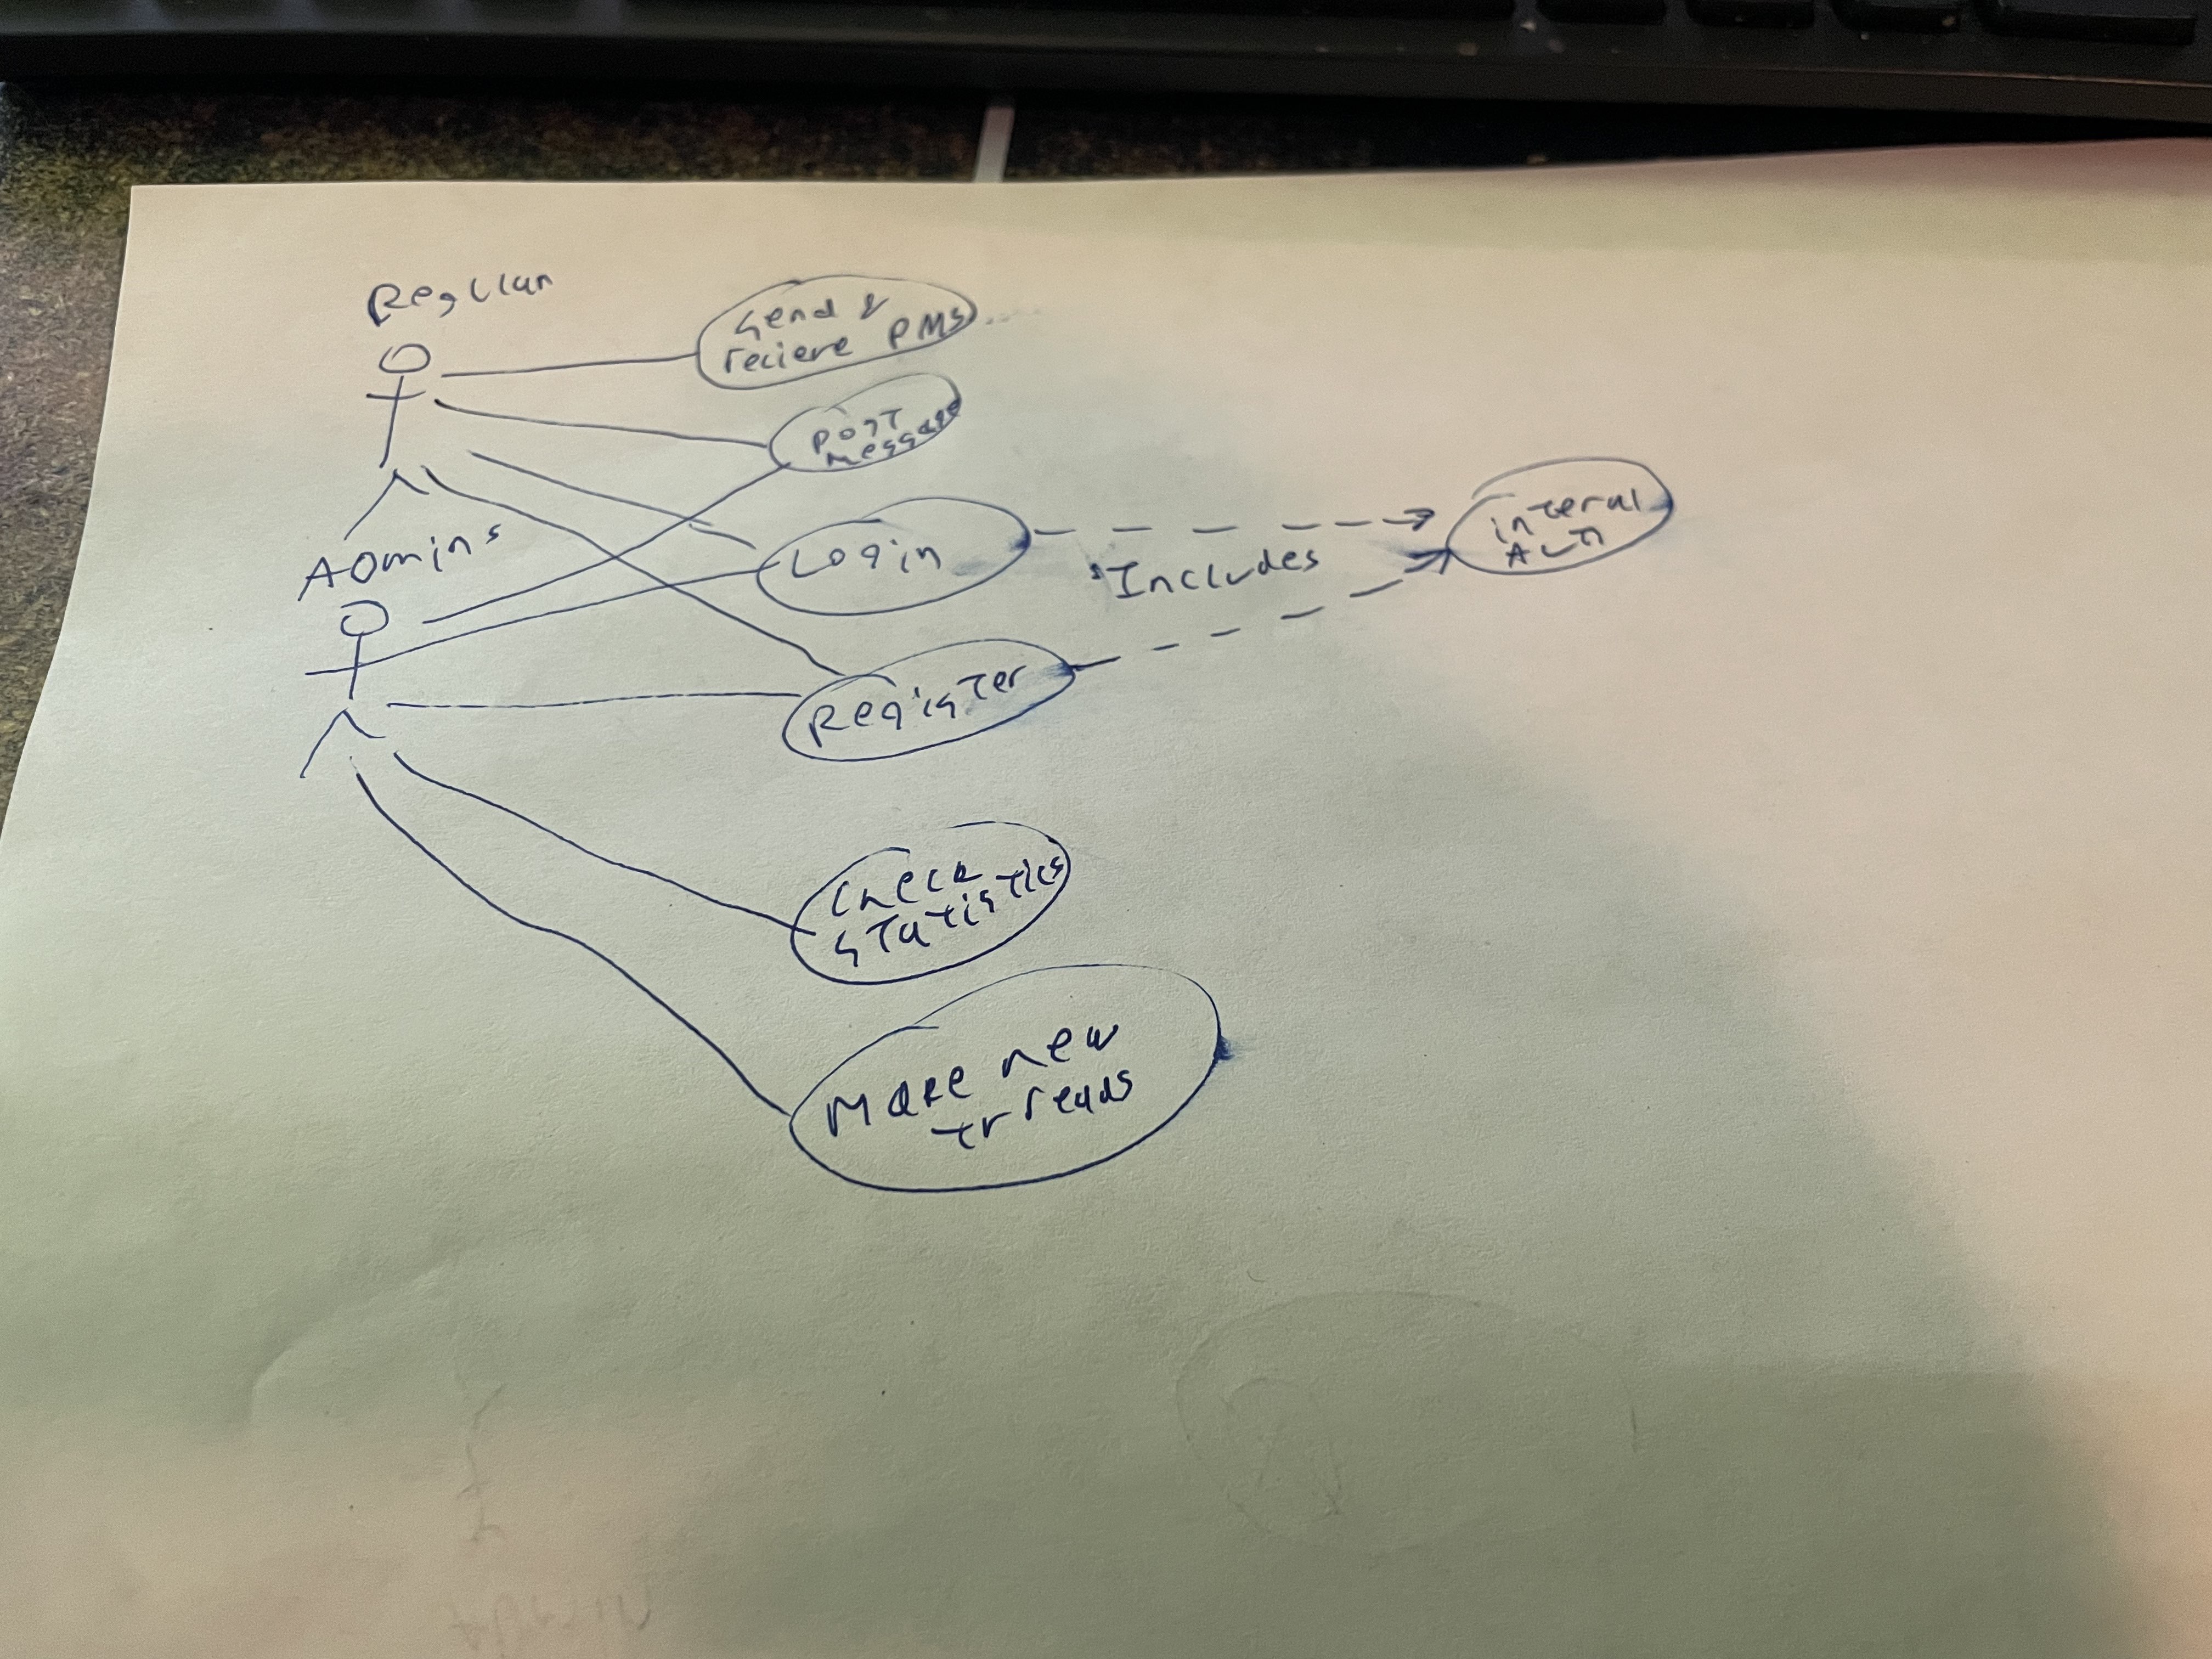 Regular
Send &
reciere PMs
Post
Message
Login
Includes
interal
Auth
Admins
Register
Check
statistics
Make new
threads